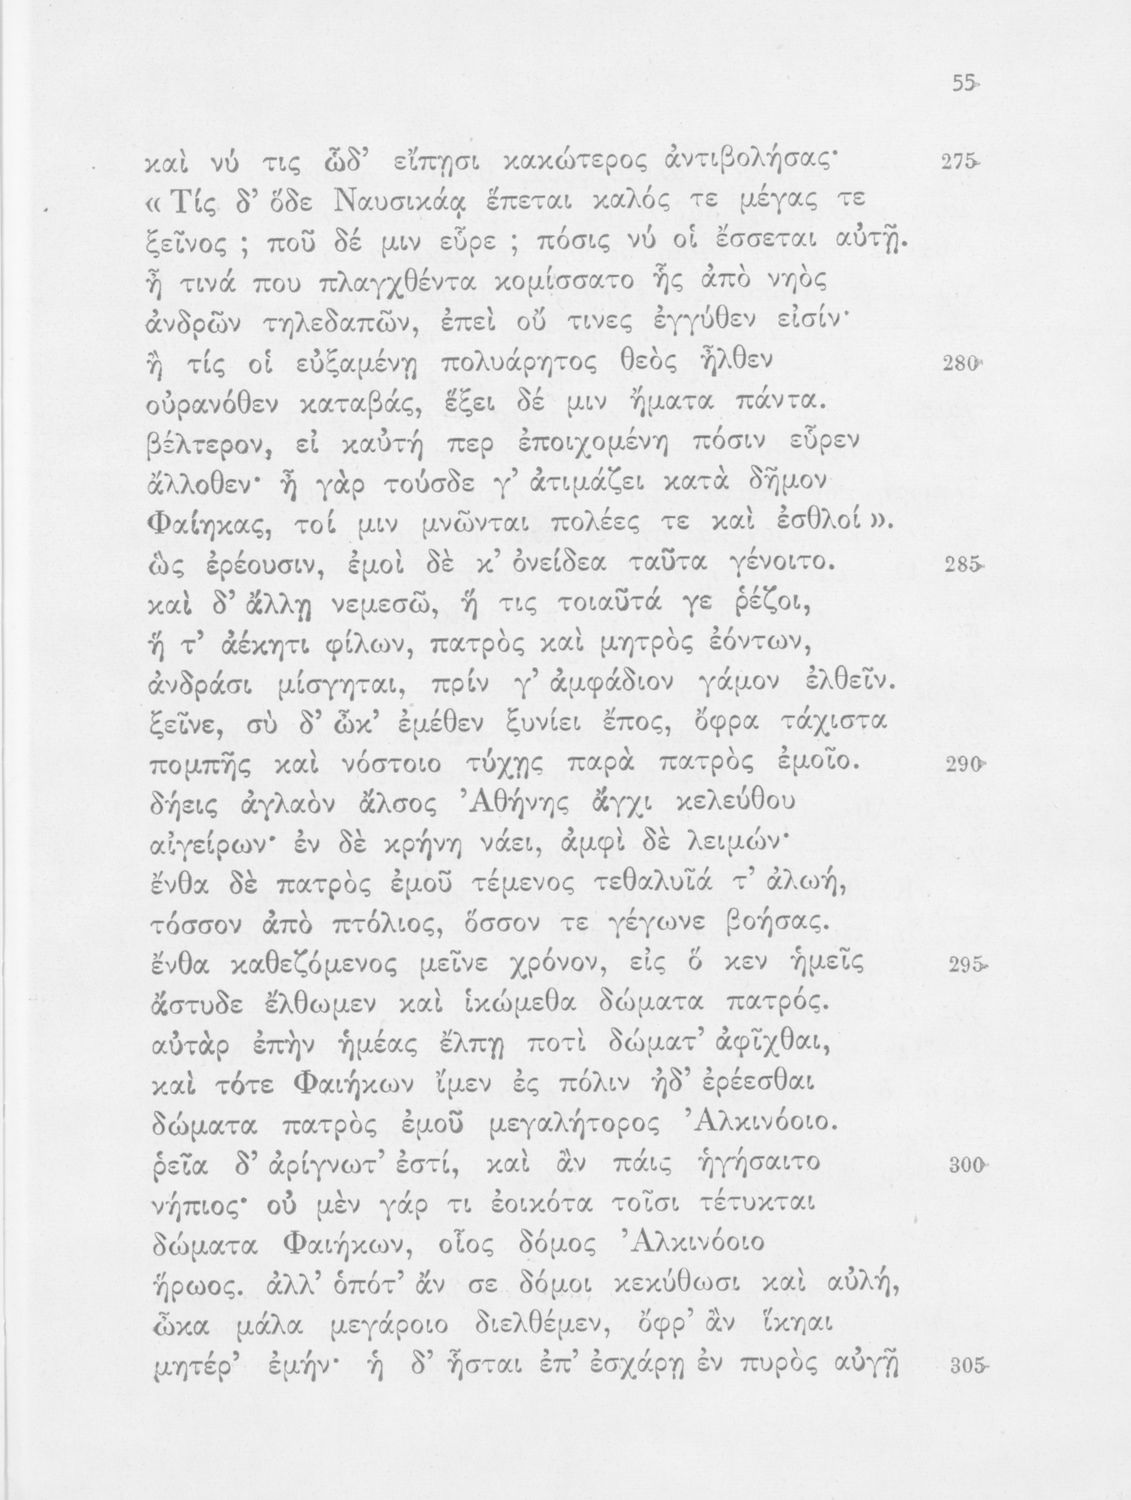 55
καὶ νύ τις ὧδ’ εἴπῃσι κακώτερος ἀντιβολήσας· 275
« Τίς δ’ ὅδε Ναυσικάᾳ ἕπεται καλός τε μέγας τε
ξεῖνος ; ποῦ δέ μιν εὗρε ; πόσις νύ οἱ ἔσσεται αὐτῇ.
ἦ τινά που πλαγχθέντα κομίσσατο ἧς ἀπὸ νηὸς
ἀνδρῶν τηλεδαπῶν, ἐπεὶ οὔ τινες ἐγγύθεν εἰσίν·
ἤ τίς οἱ εὐξαμένῃ πολυάρητος θεὸς ἦλθεν 280
οὐρανόθεν καταβάς, ἕξει δέ μιν ἤματα πάντα.
βέλτερον, εἰ καὐτή περ ἐποιχομένη πόσιν εὗρεν
ἄλλοθεν· ἦ γὰρ τούσδε γ’ ἀτιμάζει κατὰ δῆμον
Φαίηκας, τοί μιν μνῶνται πολέες τε καὶ ἐσθλοί ».
ὣς ἐρέουσιν, ἐμοὶ δὲ κ’ ὀνείδεα ταῦτα γένοιτο. 285
καὶ δ’ ἄλλῃ νεμεσῶ, ἥ τις τοιαῦτά γε ῥέζοι,
ἥ τ’ ἀέκητι φίλων, πατρὸς καὶ μητρὸς ἐόντων,
ἀνδράσι μίσγηται, πρίν γ’ ἀμφάδιον γάμον ἐλθεῖν.
ξεῖνε, σὺ δ’ ὦκ’ ἐμέθεν ξυνίει ἔπος, ὄφρα τάχιστα
πομπῆς καὶ νόστοιο τύχῃς παρὰ πατρὸς ἐμοῖο. 290
δήεις ἀγλαὸν ἄλσος Ἀθήνης ἄγχι κελεύθου
αἰγείρων· ἐν δὲ κρήνη νάει, ἀμφὶ δὲ λειμών·
ἔνθα δὲ πατρὸς ἐμοῦ τέμενος τεθαλυῖά τ’ ἀλωή,
τόσσον ἀπὸ πτόλιος, ὅσσον τε γέγωνε βοήσας.
ἔνθα καθεζόμενος μεῖνε χρόνον, εἰς ὅ κεν ἡμεῖς 295
ἄστυδε ἔλθωμεν καὶ ἱκώμεθα δώματα πατρός.
αὐτὰρ ἐπὴν ἡμέας ἔλπῃ ποτὶ δώματ’ ἀφῖχθαι,
καὶ τότε Φαιήκων ἴμεν ἐς πόλιν ἠδ’ ἐρέεσθαι
δώματα πατρὸς ἐμοῦ μεγαλήτορος Ἀλκινόοιο.
ῥεῖα δ’ ἀρίγνωτ’ ἐστί, καὶ ἂν πάις ἡγήσαιτο 300
νήπιος· οὐ μὲν γάρ τι ἐοικότα τοῖσι τέτυκται
δώματα Φαιήκων, οἷος δόμος Ἀλκινόοιο
ἥρωος. ἀλλ’ ὁπότ’ ἄν σε δόμοι κεκύθωσι καὶ αὐλή,
ὦκα μάλα μεγάροιο διελθέμεν, ὄφρ’ ἂν ἵκηαι
μητέρ’ ἐμήν· ἡ δ’ ἧσται ἐπ’ ἐσχάρῃ ἐν πυρὸς αὐγῇ 305